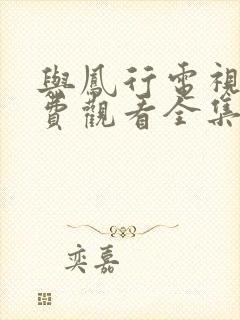 與鳳行電視
費觀看全集
奕嘉